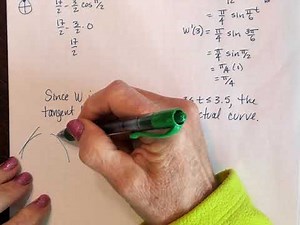 17/2 - 3/2 cos π/2
17/2 - 3/2 · 0
17/2
12
= π/4 sin π/6 t
W'(3) = π/4 sin 3π/6
= π/4 sin π/2
= π/4 (1)
= π/4
Since W
≤ t ≤ 3.5, the
tangent
curve.